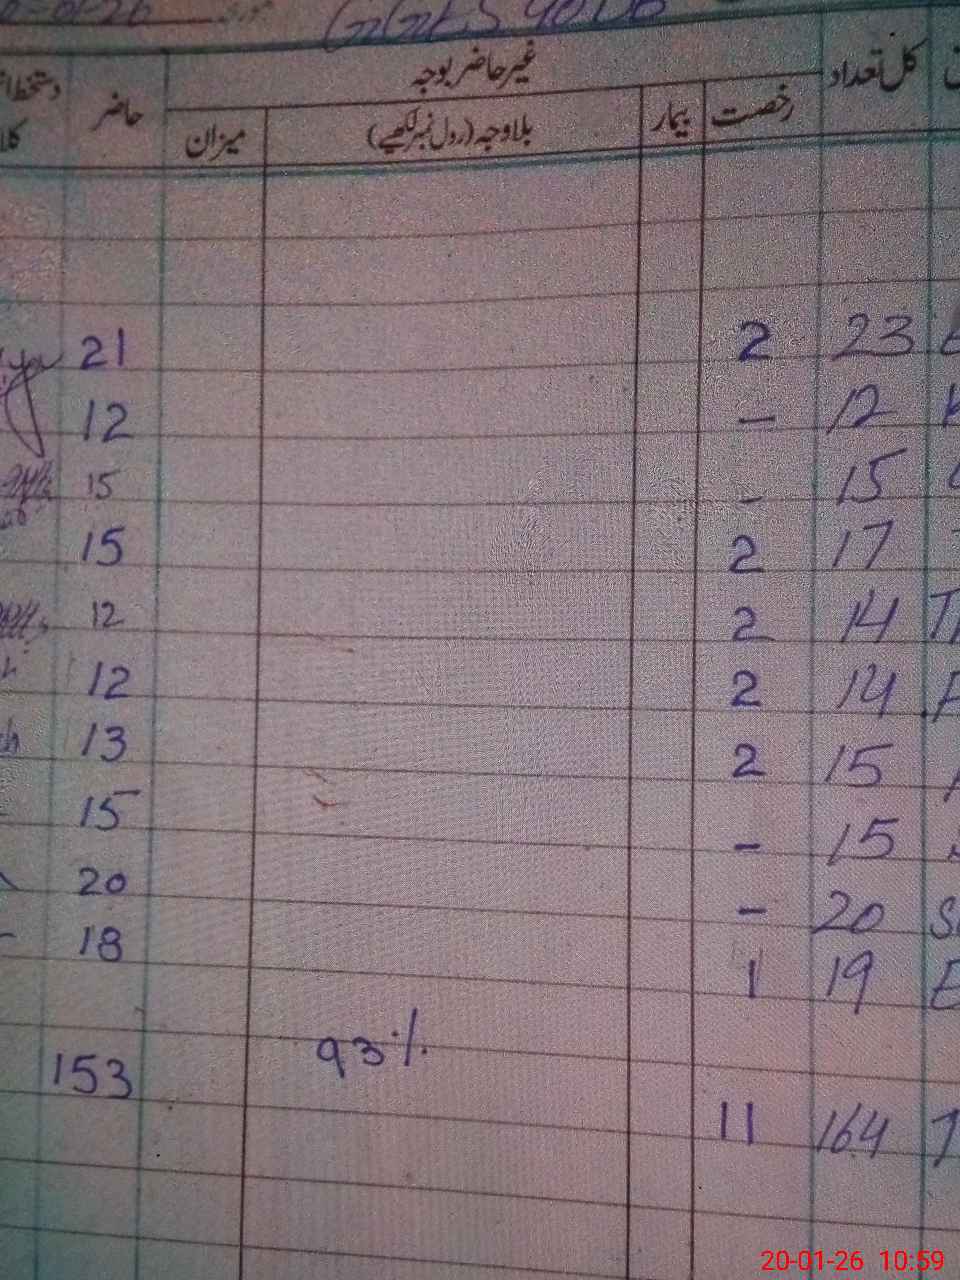 غیر حاضر بوجہ
کل تعداد رخصت بیمار بلاوجہ (رول نمبر لکھیے) میزان حاضر
23 2 21
12 - 12
15 - 15
17 2 15
14 2 12
14 2 12
15 2 13
15 - 15
20 - 20
19 1 18
164 11 93% 153
20-01-26 10:59